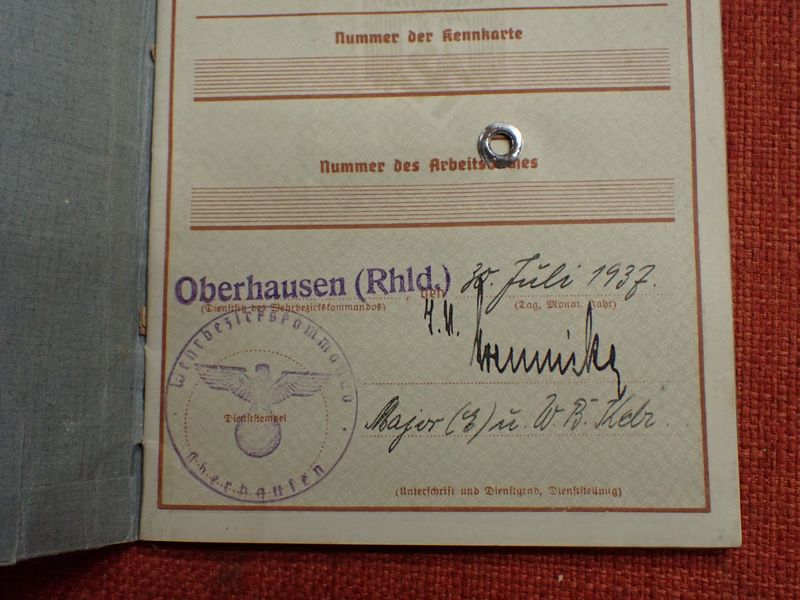 Nummer der Kennkarte
Nummer des Arbeitsbuches
Oberhausen (Rhld.), den 30. Juli 1937.
(Dienstsitz des Wehrbezirkskommandos) (Tag, Monat, Jahr)
Wehrbezirkskommando
Dienststempel
Oberhausen
Major (E) u. W. B. Kdr.
(Unterschrift und Dienstgrad, Dienststellung)